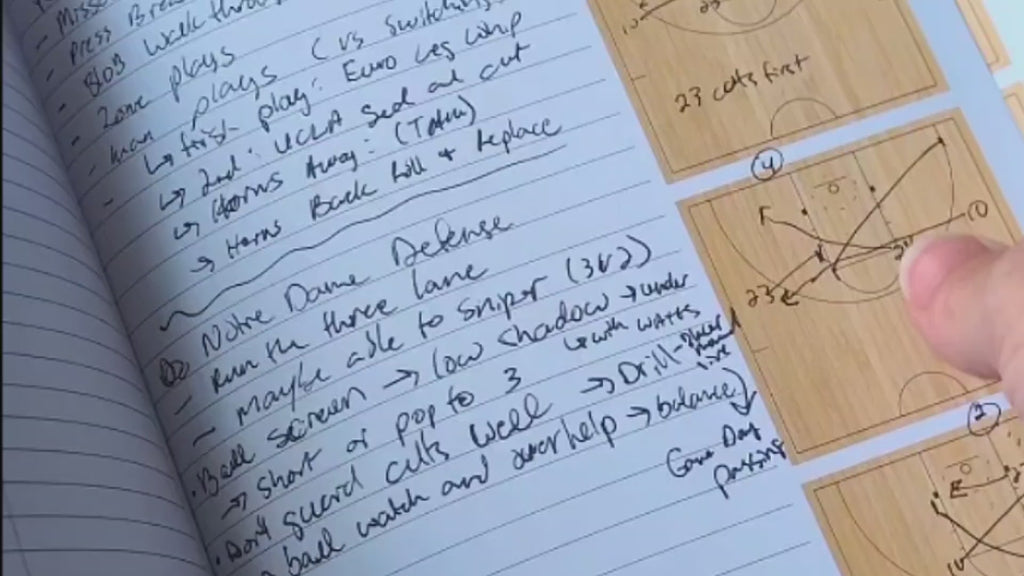 - Press Br
- Blob walk thro
- Zone plays
- Man plays (vs switching
↳ first play: Euro Leg whip
↳ 2nd: UCLA Seal and cut
↳ Horns Away: (
→ Horns Back Roll + Replace
Notre Dame Defense
- Run the three lane
- maybe able to sniper (3v2)
• Ball screen → low shadow → under
↳ with WATTS
→ short or pop to 3
• Don't guard cuts well → Drill -
live
ball watch and overhelp → balance
Game Day
passing
23 cuts first
4
10
23
2
10